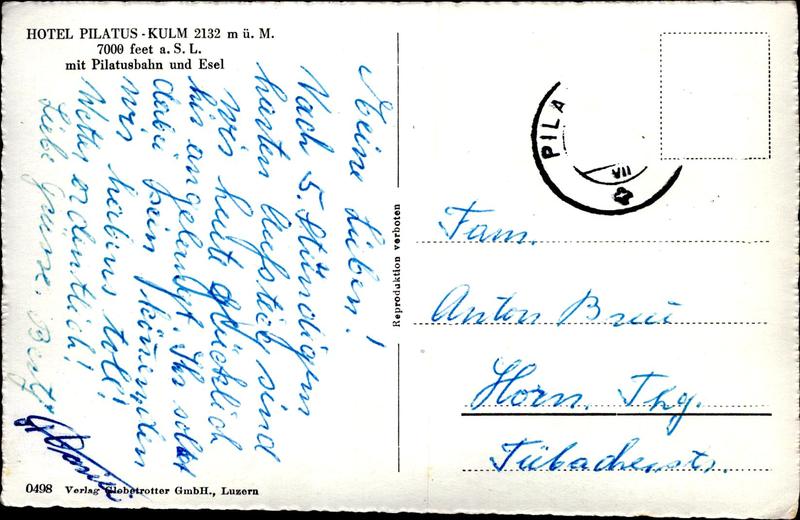 HOTEL PILATUS - KULM 2132 m ü. M.
7000 feet a. S. L.
mit Pilatusbahn und Esel
Meine Lieben!
Nach 5. Stündigem
harten Aufstieg sind
wir heute glücklich
hier angelangt. Ihr solltet
dabei sein können
wir habens toll!
Wetter ordentlich!
Liebe Grüsse.
Reproduktion verboten
PILA
VII
Fam.
Anton
Horn. Thg.
Tübacherstr.
0498 Verlag Globetrotter GmbH., Luzern